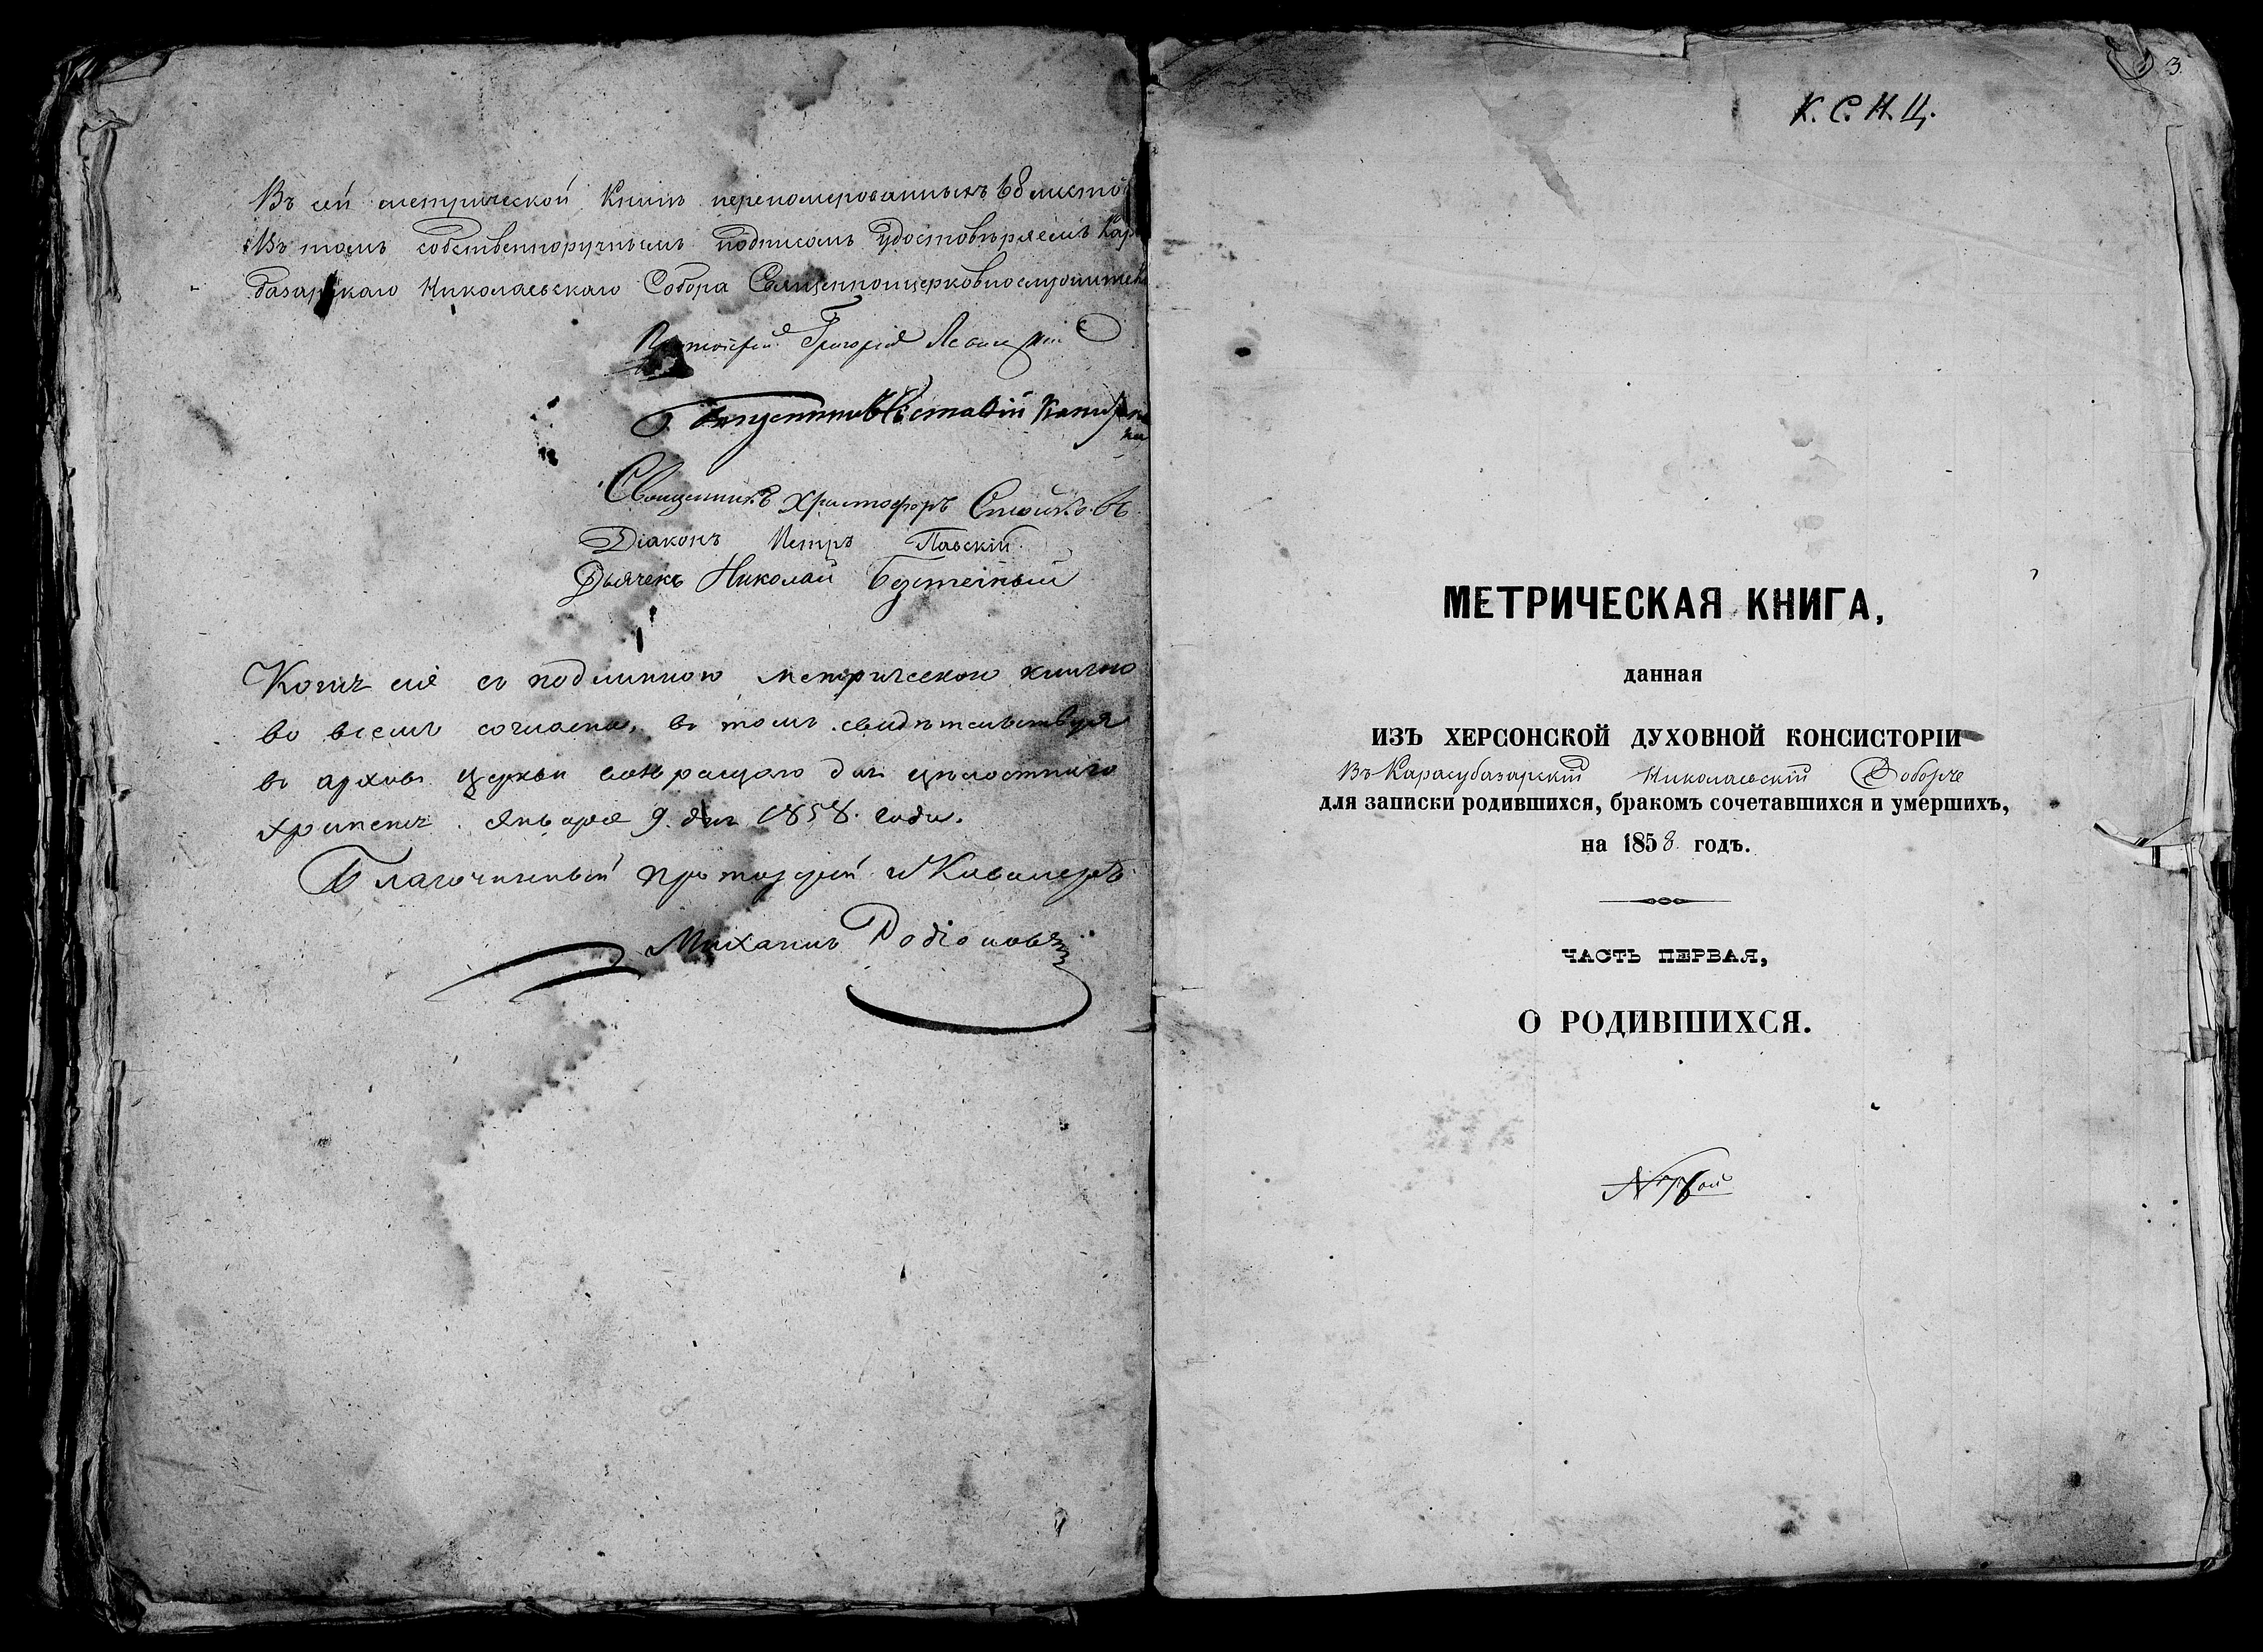 Въ сей метрической Книгѣ перенумерованныхъ 68 листо
Въ томъ собственноручнымъ подписомъ удостовѣряемъ Кар
базарскаго Николаевскаго Собора Священноцерковнослужите
Протоіерей Григорій
Священникъ Христофоръ
Діаконъ Петръ Павскій
Дьячекъ Николай
Копія сія съ подлинною метрическою книгою
во всемъ согласна, въ томъ свидѣтельствуя
въ архивъ церкви возвращаю для цѣлостнаго
храненія. Января 9 дня 1858 года.
Благочинный протоіерей и Кавалеръ
Михаилъ Родіоновъ
3
К. С. Н. Ц.
МЕТРИЧЕСКАЯ КНИГА,
данная
ИЗЪ ХЕРСОНСКОЙ ДУХОВНОЙ КОНСИСТОРІИ
Въ Карасубазарскій Николаевскій Соборъ
для записки родившихся, бракомъ сочетавшихся и умершихъ,
на 1858 годъ.
ЧАСТЬ ПЕРВАЯ,
О РОДИВШИХСЯ.